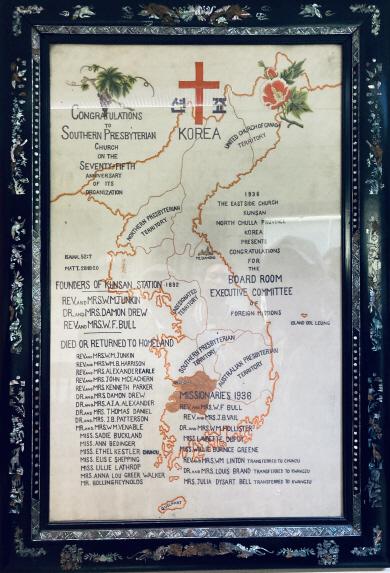 CONGRATULATIONS
TO
SOUTHERN PRESBYTERIAN
CHURCH
ON THE
SEVENTY-FIFTH
ANNIVERSARY
OF ITS
ORGANIZATION
KOREA
UNITED CHURCH OF CANADA
TERRITORY
NORTHERN PRESBYTERIAN
TERRITORY
1936
THE EAST SIDE CHURCH
KUNSAN
NORTH CHULLA PROVINCE
KOREA
PRESENTS
CONGRATULATIONS
FOR
THE
BOARD ROOM
EXECUTIVE COMMITTEE
OF
FOREIGN MISSIONS
ISAIAH. 52:7
MATT. 28:18-20
FOUNDERS OF KUNSAN STATION 1892
REV. AND MRS. W.M. JUNKIN
DR. AND MRS. DAMON DREW
REV. AND MRS. W.F. BULL
TERRITORY
SOUTHERN PRESBYTERIAN
TERRITORY
AUSTRALIAN PRESBYTERIAN
TERRITORY
DIED OR RETURNED TO HOMELAND
REV. AND MRS. W.M. JUNKIN
REV. AND MRS. W.B. HARRISON
REV. AND MRS. ALEXANDER EARLE
REV. AND MRS. JOHN MCEACHERN
REV. AND MRS. KENNETH PARKER
DR. AND MRS. DAMON DREW
DR. AND MRS. A.J.A. ALEXANDER
DR. AND MRS. THOMAS DANIEL
DR. AND MRS. J.B. PATTERSON
MR. AND MRS. W.M. VENABLE
MISS. SADIE BUCKLAND
MISS. ANN BEDINGER
MISS. ETHEL KESTLER CHUNJU
MISS. ELISE SHEPPING
MISS. LILLIE LATHROP
MRS. ANNA LOU GREER WALKER
MR. BOLLING REYNOLDS
MISSIONARIES 1936
REV. AND MRS. W.F. BULL
REV. AND MRS. J.B. VAIL
DR. AND MRS. WM. HOLLISTER
MISS. LAVALETTE DUPUY
MISS. WILLIE BURNICE GREENE
REV. AND MRS. WM. LINTON TRANSFERRED TO CHUNJU
DR. AND MRS. LOUIS BRAND TRANSFERRED TO KWANGJU
MRS. JULIA DYSART BELL TRANSFERRED TO KWANGJU